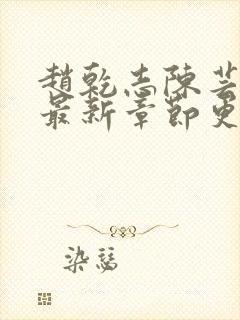 趙乾志陳芸
最新章節更
染瑟